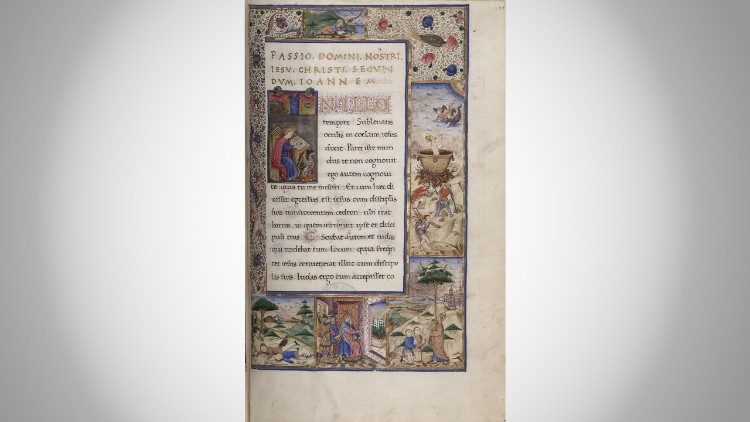 PASSIO. DOMINI. NOSTRI.
IESV. CHRISTI. SECVN
DVM. IOANNEM.
N ILLO
tempore Subleuatis
oculis in coelum iesus
dixit. Pater iste mun
dus te non cognouit
ego autem cognoui
te quia tu me misisti. Et cum haec di
xisset egressus est iesus cum discipulis
suis trans torrentem cedron ubi erat
hortus in quem introiuit ipse et disci
puli eius. Sciebat autem et iudas
qui tradebat eum locum quia
ter iesus conuenerat illuc cum discipu
lis suis. Iudas ergo cum accepisset co